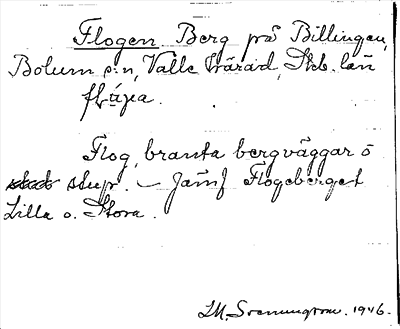 Flogen Berg på Billingen,
Bolum s:n, Valle härad, Skb. län
Flog, branta bergväggar o
stup. – Jämf Flogeberget
Lilla o. Stora.
1946.